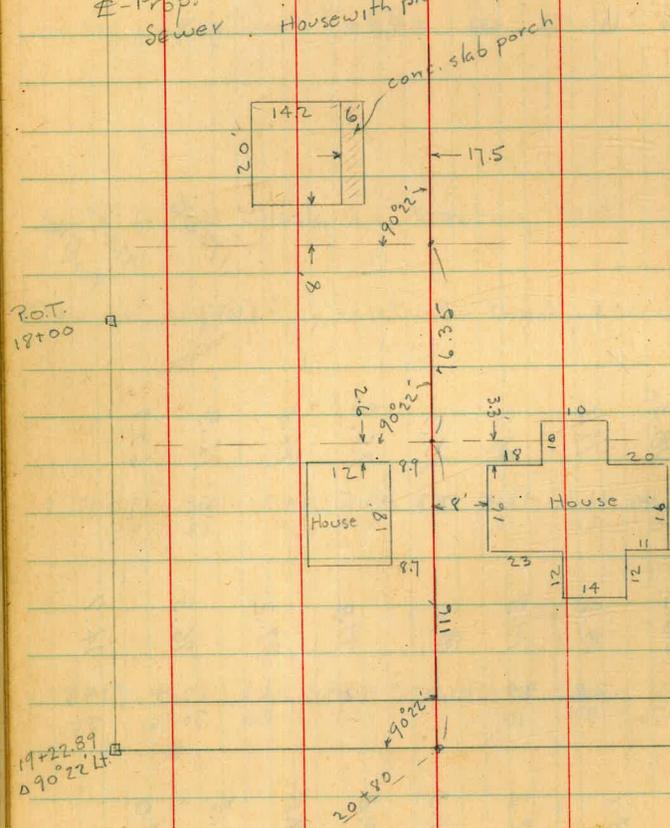 ℄-Prop.
Sewer. House with
conc. slab porch
14.2
6'
20'
17.5
90°22'
8'
P.O.T.
18+00
76.35
6.2
90°22'
3.3'
10
18
10
20
12
8.9
House
18'
8'
16
House
16
8.7
23
12
14
12
11
116
90°22'
19+22.89
Δ90°22' Lt.
20+80